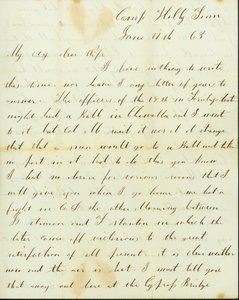 Camp Holly Tenn
June 11th 63
My very dear Wife
I have nothing to write
this time nor have I any letter of yours to
answer. The officers of the 18th in Tenderfoot
night had a Ball in Chewalla and I went
to it but Col M said it was a strange
that that a man would go to a Ball and take
no part in it, had to do this you know
I had no desire for various reasons that I
will give you when I go home we had a
fight in Co I the other Morning between
in which the
later came off victorious to the great
satisfaction of all present, it is clear weather
now and the air is hot. I must tell you
that away out here at the Cyprus Bridge